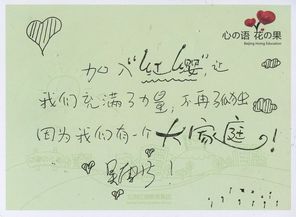 心の语 花の果
Beijing Hong Education
加入“红缨”让
我们充满了力量,不再孤独
因为我们有一个大家庭の!